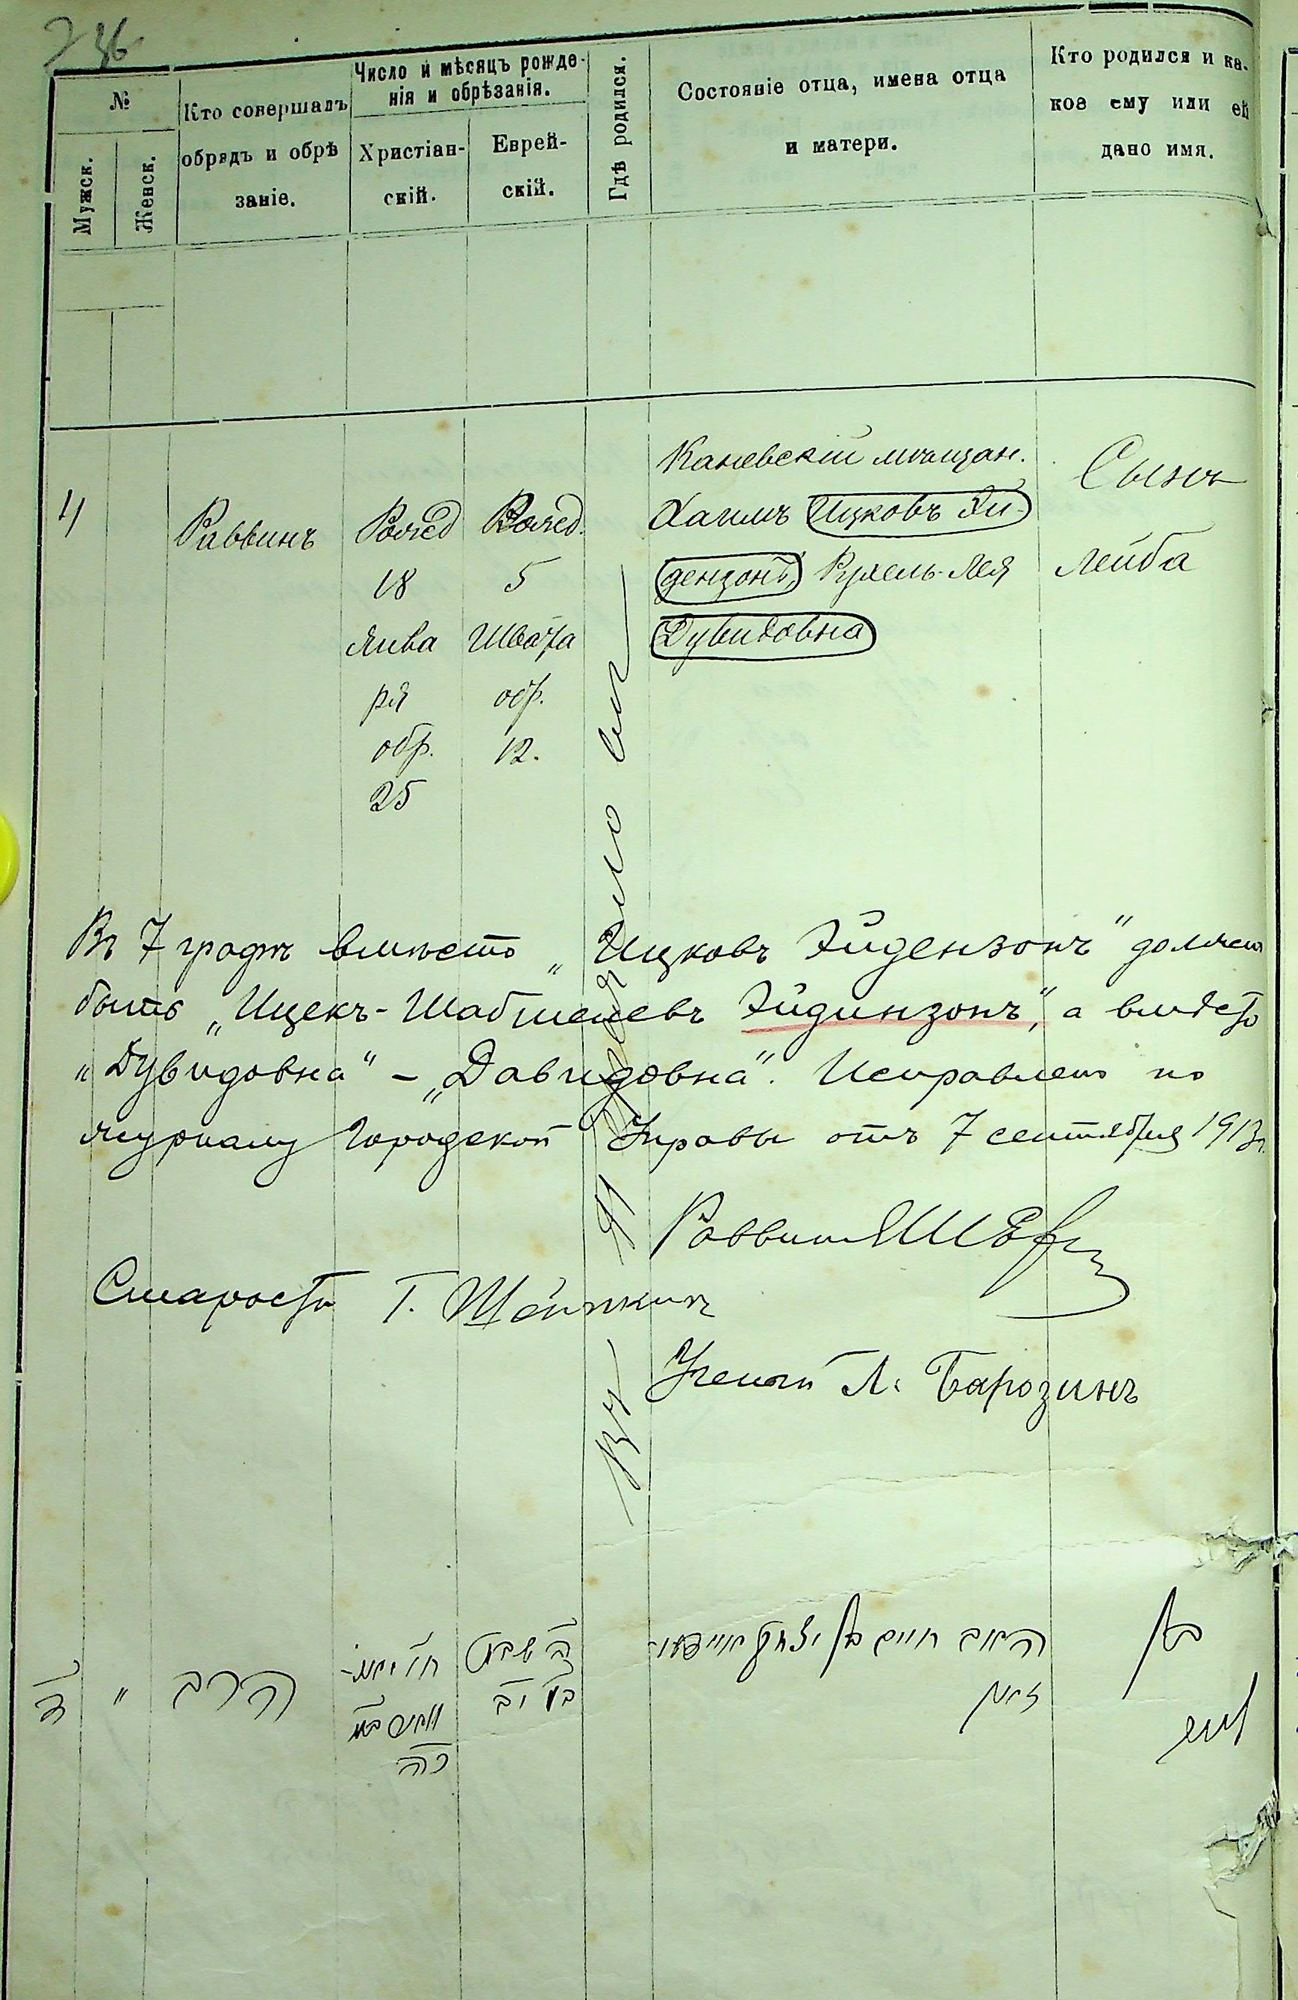 236
№
Мужск.
Женск.
Кто совершалъ
обрядъ и обрѣ
заніе.
Число и мѣсяцъ рожде-
нія и обрѣзанія.
Христіан-
скій.
Еврей-
скій.
Гдѣ родился.
Состояніе отца, имена отца
и матери.
Кто родился и ка-
кое ему или ей
дано имя.
4
Раввинъ
Рожд
18
Янва
ря
обр.
25
Рожд.
5
Швата
обр.
12.
Каневскій мѣщан.
Хаимъ Ицковъ Эй-
дензонъ, Рухель-Лея
Дувидовна
Сынъ
Лейба
Въ 7 графѣ вмѣсто „Ицковъ Эйдензонъ“ должен
быть „Ицекъ-Шабшелевъ Эйдинзонъ“, а вмѣсто
„Дувидовна“ – „Давидовна“. Исправлено по
журналу Городской Управы отъ 7 сентября 1913г.
Раввинъ
Староста Г.
Ученый Л. Барозинъ
הרב
ה שבט
יב
כה
חיים בן יצחק
זאהן
בן